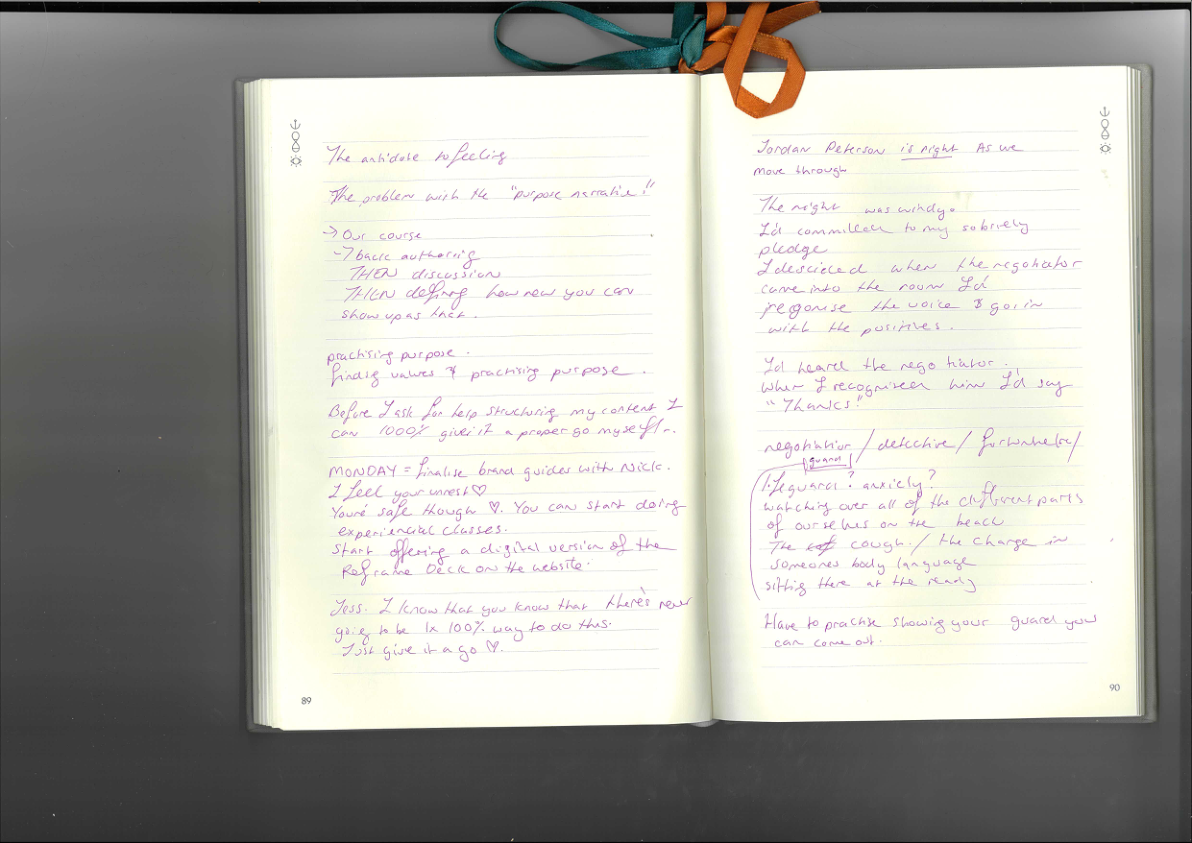 The antidote to feeling
The problem with the "purpose narrative!"
→ Our course
→ basic authoring
THEN discussion
THEN defining how new you can
show up as that.
practising purpose.
finding values & practising purpose.
Before I ask for help structuring my content I
can 1000% give it a proper go myself.
MONDAY = finalise brand guides with Nick.
I feel your unrest ♡
You're safe though ♡. You can start doing
experiencial classes.
Start offering a digital version of the
Reframe Deck on the website.
Jess. I know that you know that there's never
going to be 1x 100% way to do this.
Just give it a go ♡.
89
Jordan Peterson is right As we
move through
The night was windy.
I'd committed to my sobriety
pledge
I descided when the negotiator
came into the room I'd
recgonise the voice & go in
with the positives.
I'd heard the negotiator.
When I recognised him I'd say
"Thanks."
negotiation / detective /
guard
lifeguard? anxiety?
watching over all of the different parts
of ourselves on the beach
The cough. / the change in
someones body language
sitting there at the ready
Have to practise showing your guard you
can come out.
90